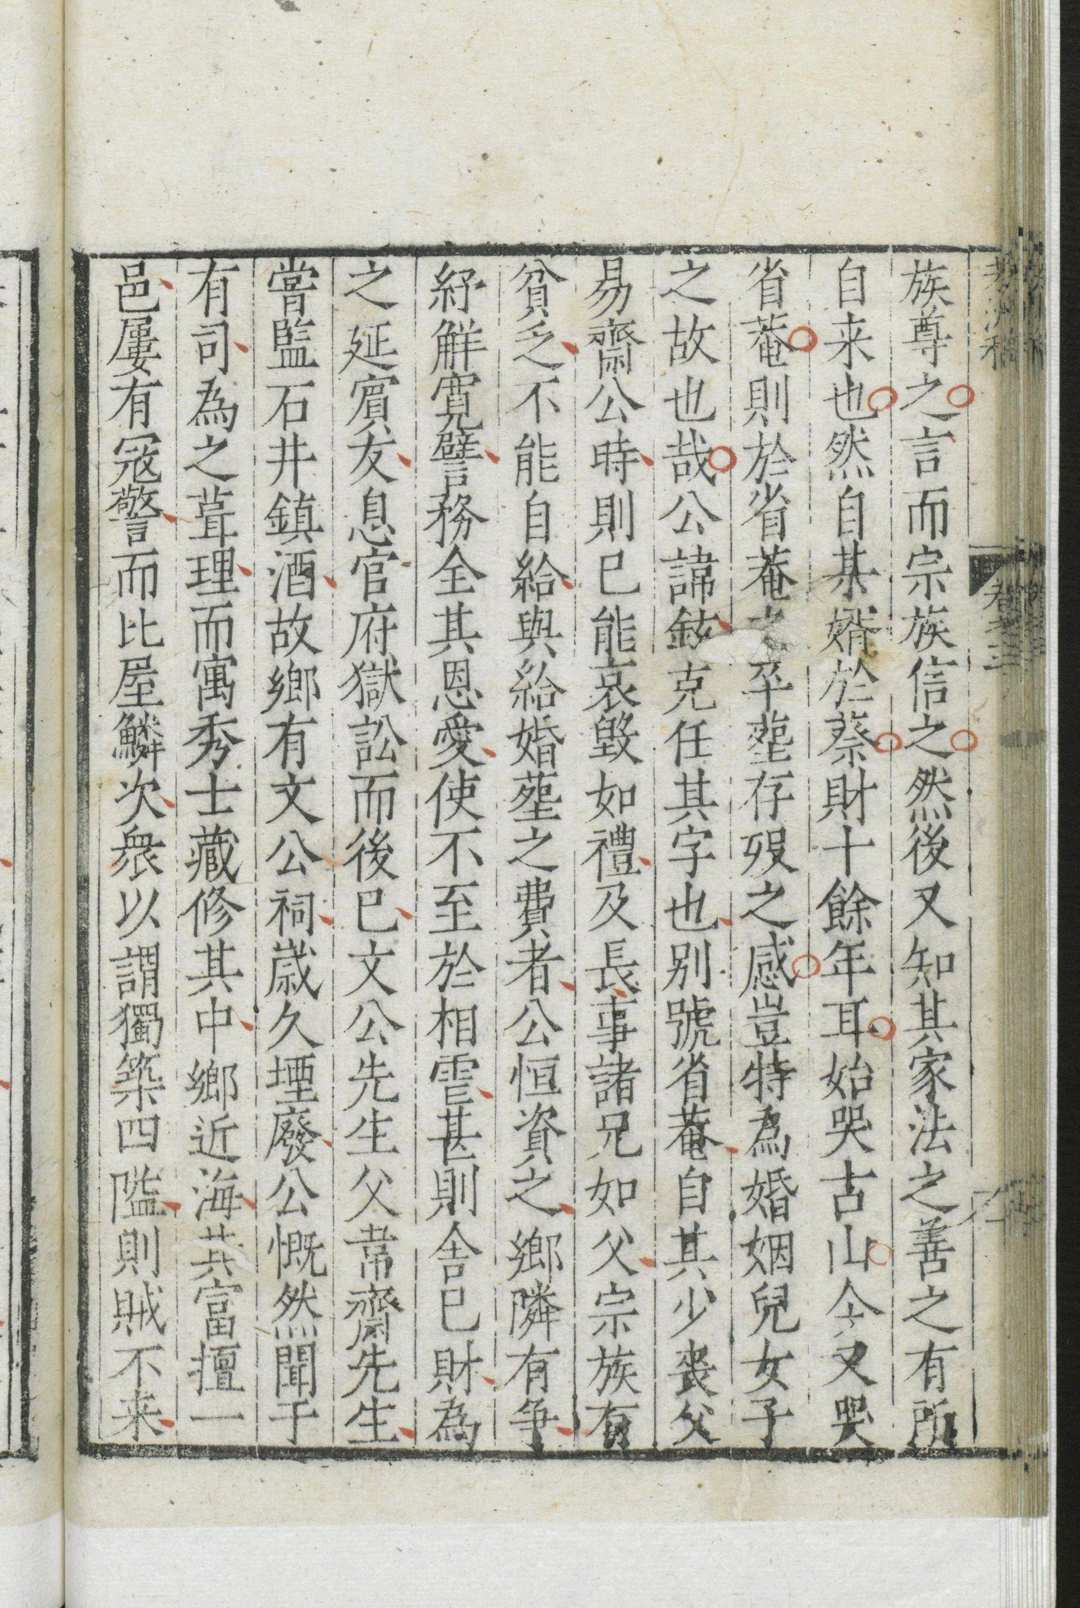 族尊之言而宗族信之然後又知其家法之善之有所
自来也然自某婿於蔡財十餘年耳始哭古山今又哭
省菴則於省菴之卒塟存殁之感豈特為婚姻兒女子
之故也哉公諱鉉克任其字也別號省菴自其少丧父
易齋公時則已能哀毀如禮及長事諸兄如父宗族有
貧乏不能自給與給婚塟之費者公恒資之鄉隣有争
紓觧寛譬務全其恩愛使不至於相讐甚則舍已財為
之延賓友息官府獄訟而後已文公先生父韋齋先生
嘗監石井鎮酒故鄉有文公祠歳久堙廢公慨然聞于
有司為之葺理而寓秀士藏修其中鄉近海其富擅一
邑屢有冦警而比屋鱗次衆以謂獨築四隘則賊不来
卷之三